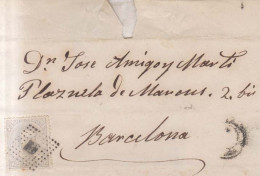 Dn Jose Amigo y Marti
Plazuela de Marcus. 2. bis
Barcelona